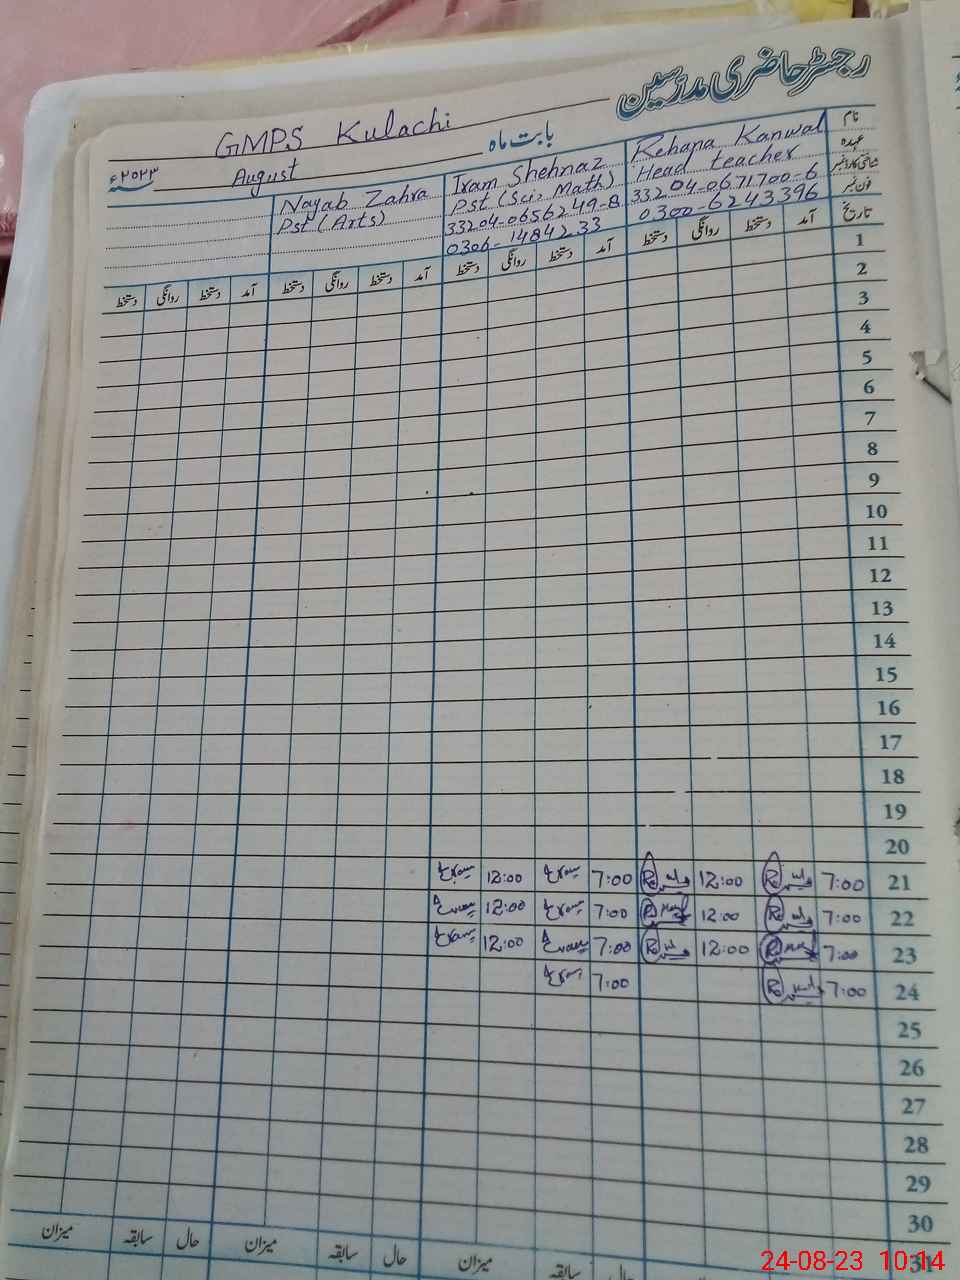 رجسٹر حاضری مدرسین
GMPS Kulachi بابت ماہ
August ۲۰۲۳ء
نام Rehana Kanwal Iram Shehnaz Nayab Zahra
عہدہ Head teacher Pst (Sci, Math) Pst (Arts)
شناختی کارڈ نمبر 33204-0671700-6 33204-0656249-8
فون نمبر 0300-6243396 0306-1484233
تاریخ آمد دستخط روانگی دستخط آمد دستخط روانگی دستخط آمد دستخط روانگی دستخط آمد دستخط روانگی دستخط
1
2
3
4
5
6
7
8
9
10
11
12
13
14
15
16
17
18
19
20
21 7:00 12:00 7:00 12:00
22 7:00 12:00 7:00 12:00
23 7:00 12:00 7:00 12:00
24 7:00 7:00
25
26
27
28
29
30
31
حال سابقہ میزان حال سابقہ میزان حال سابقہ میزان
24-08-23 10:14